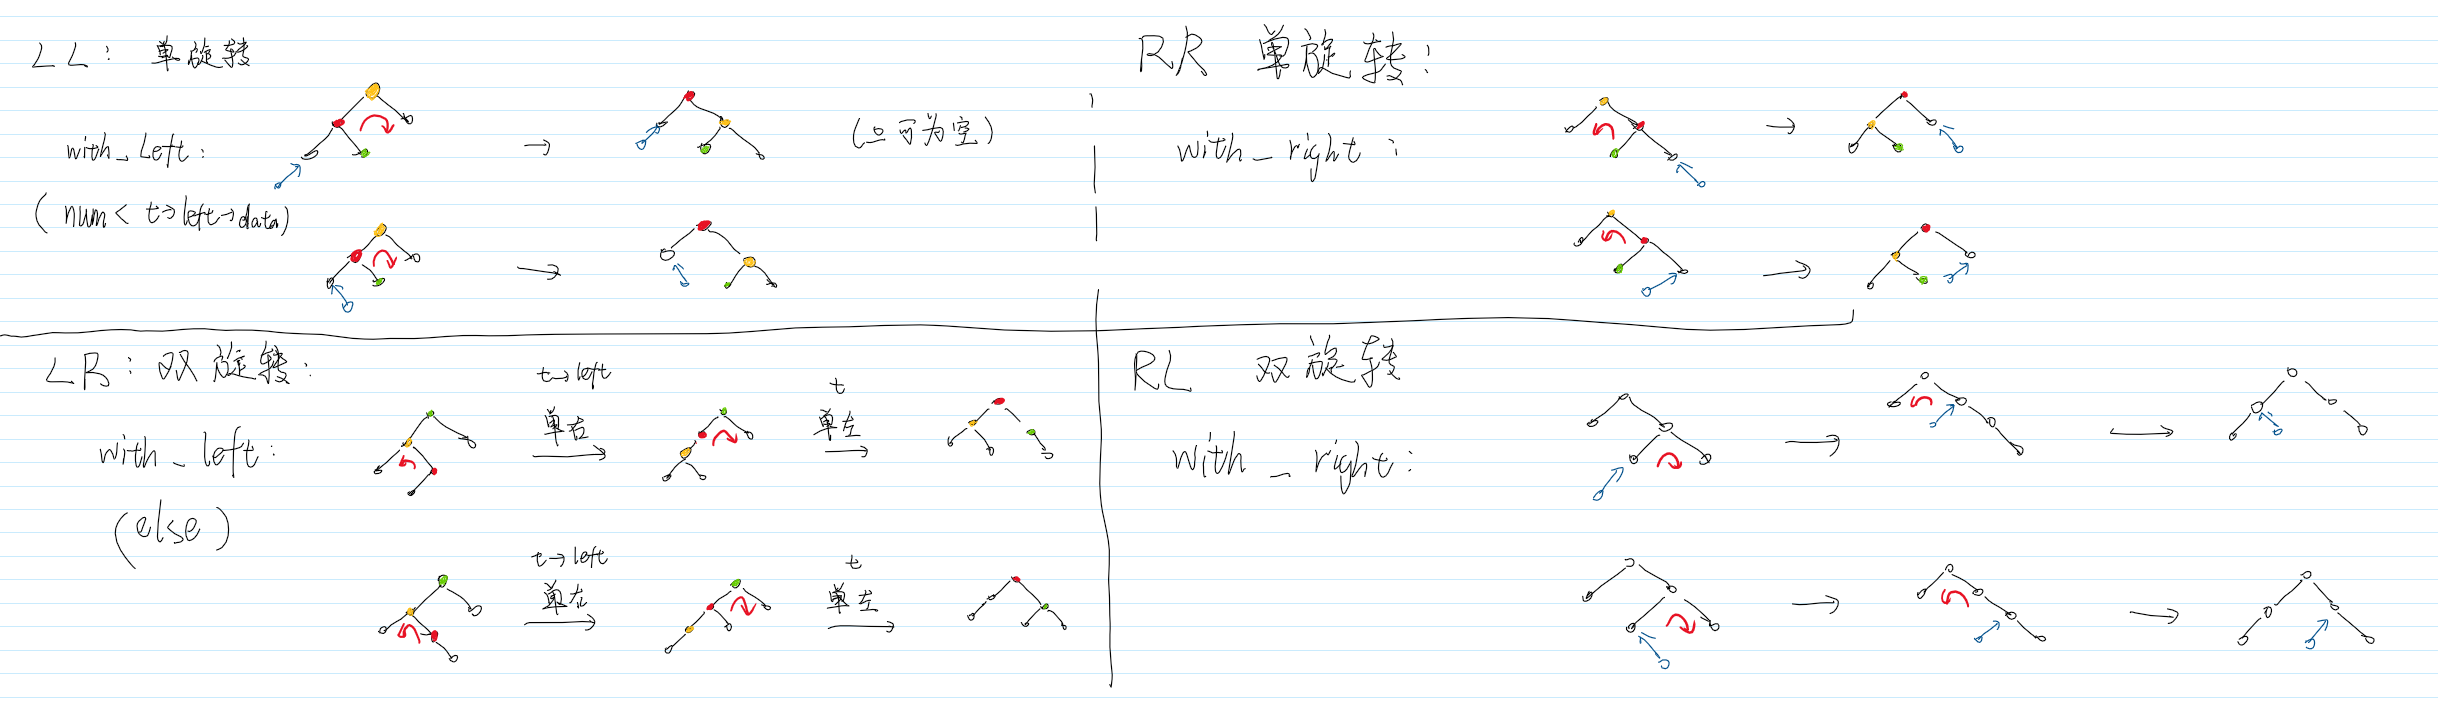 LL: 单旋转
with_Left:
(○可为空)
(num < t→left→data)
RR 单旋转:
with_right:
LR: 双旋转:
with_left:
(else)
t→left
单右
t
单左
t→left
单左
t
单左
RL 双旋转
with_right: